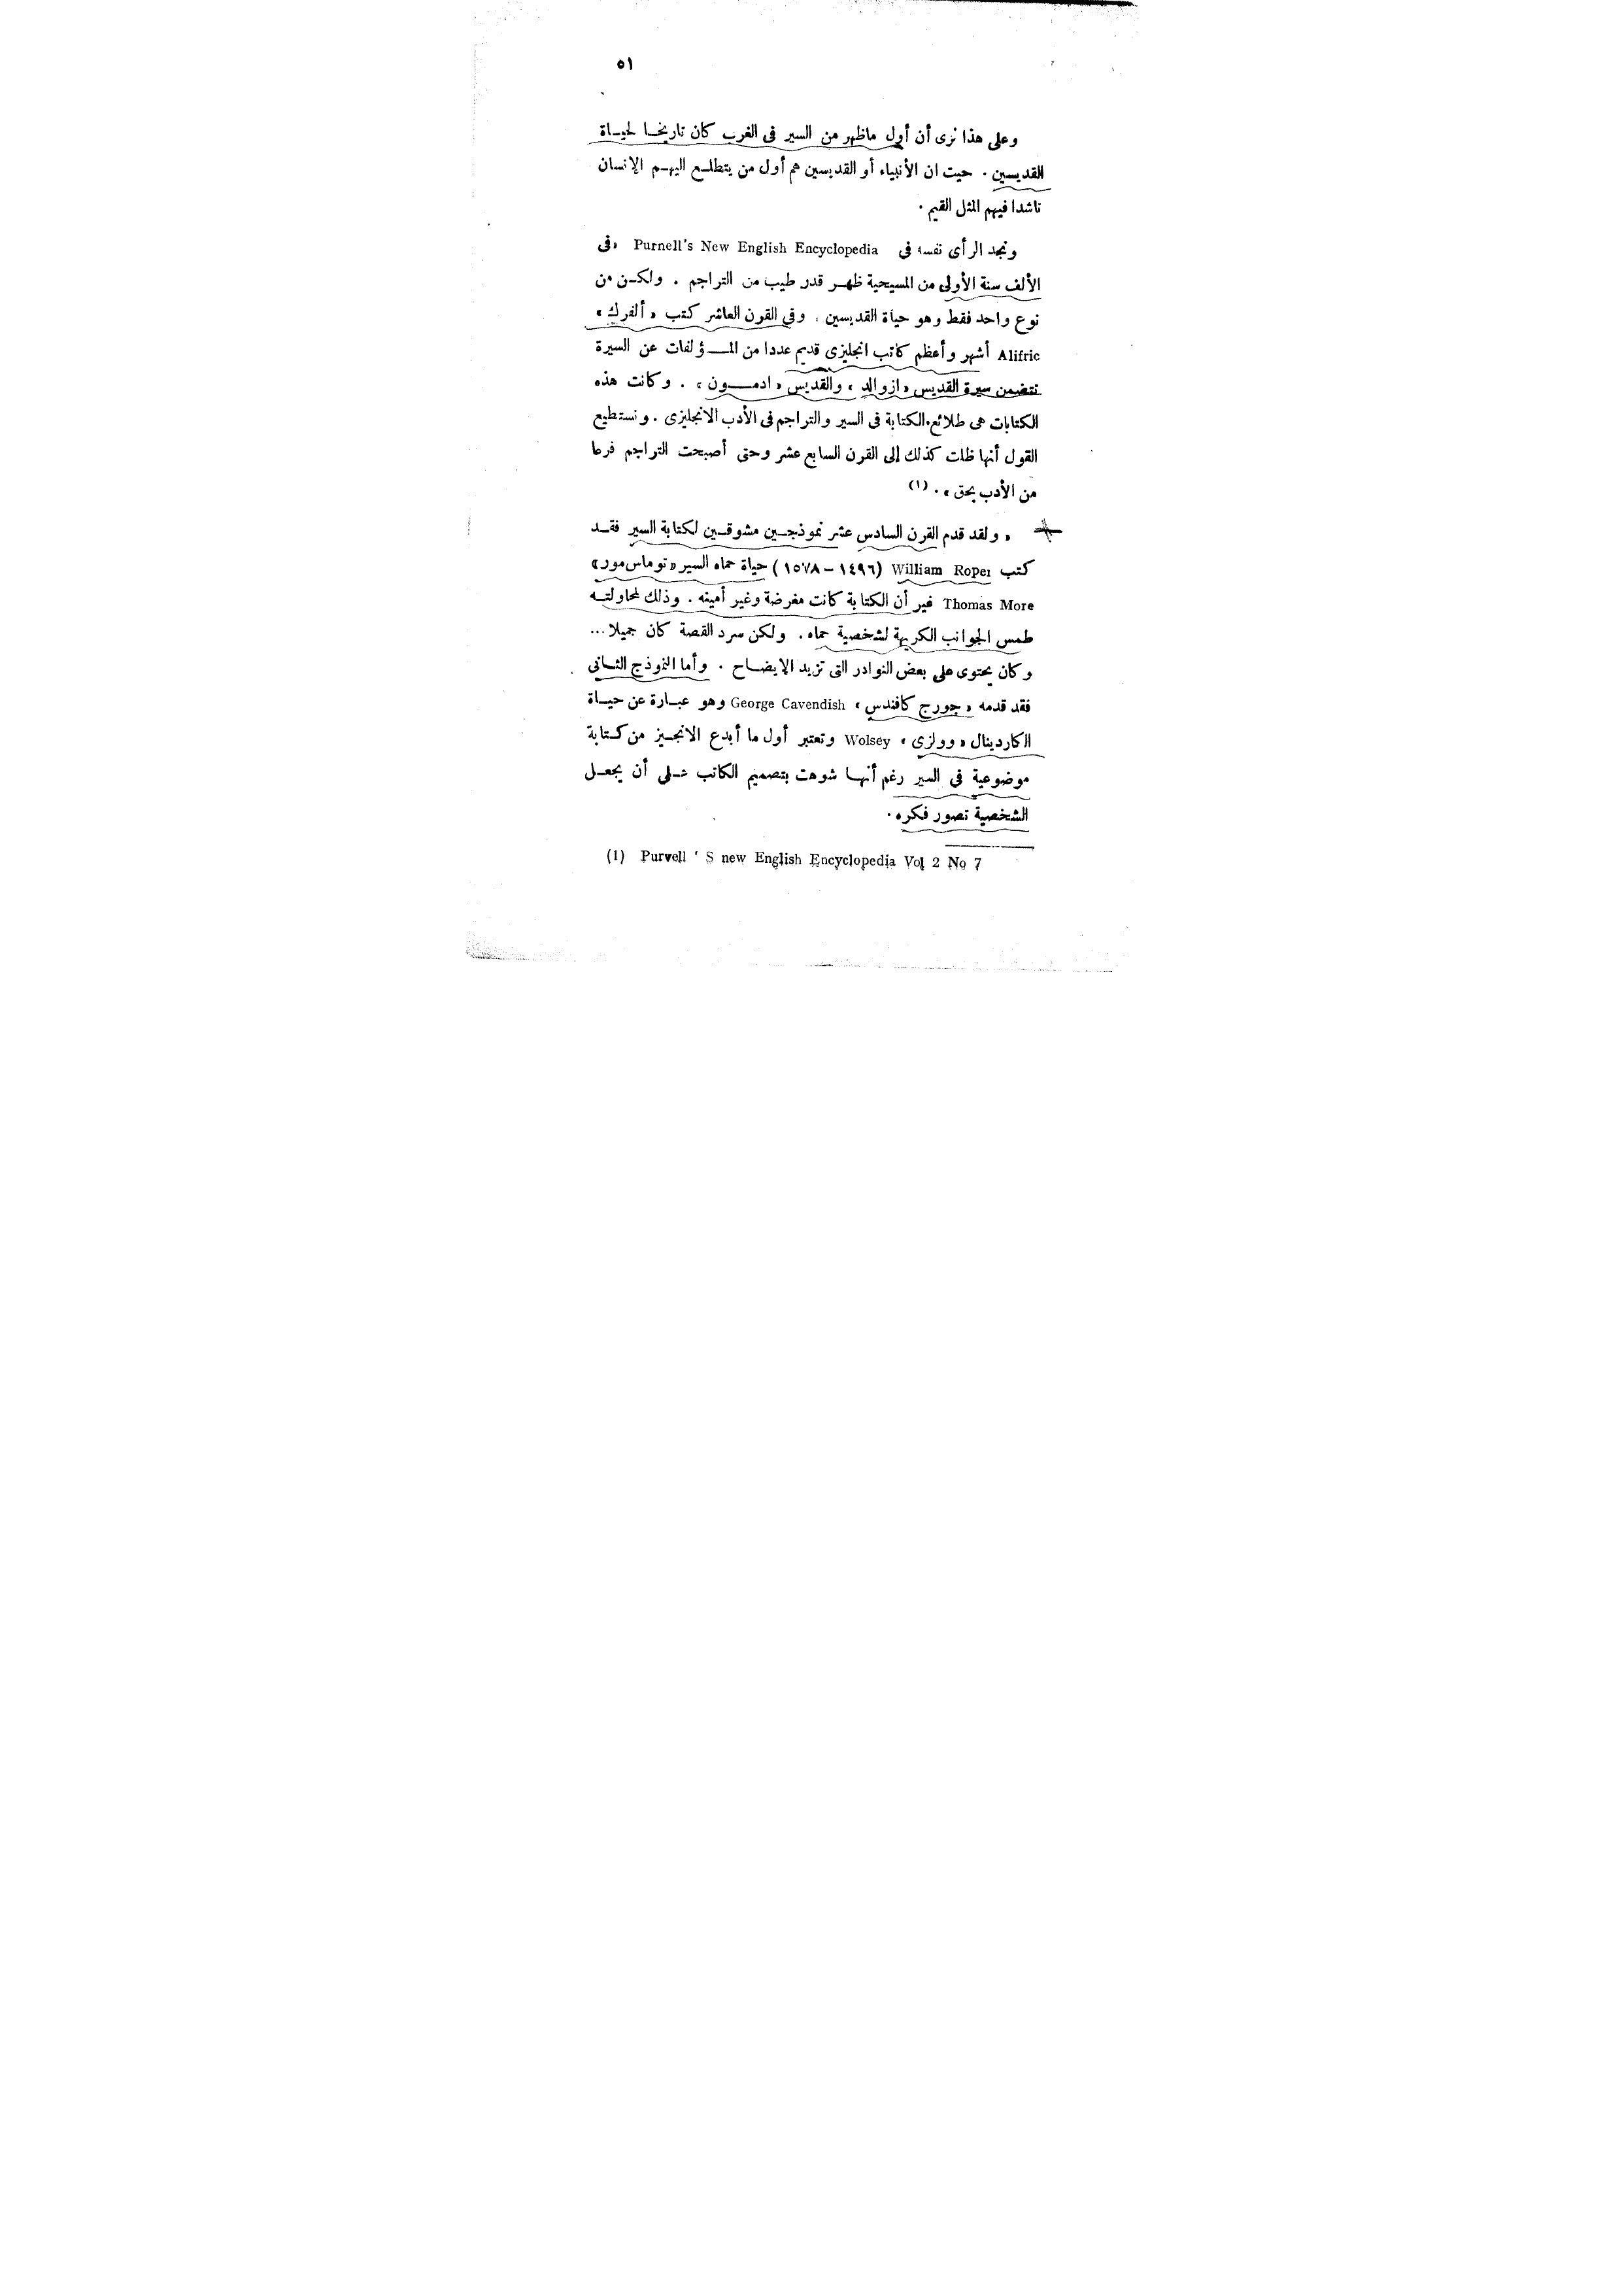 ٥١
وعلى هذا نرى أن أول ماظهر من السير فى الغرب كان تاريخا لحياة
القديسين . حيت ان الأنبياء أو القديسين هم أول من يتطلع اليهم الإنسان
ناشدا فيهم المثل القيم .
ونجد الرأى نفسه فى Purnell's New English Encyclopedia «فى
الألف سنة الأولى من المسيحية ظهر قدر طيب من التراجم . ولكن من
نوع واحد فقط وهو حياة القديسين . وفى القرن العاشر كتب « ألفرك »
Alifric أشهر وأعظم كاتب انجليزى قديم عددا من المؤلفات عن السيرة
تتضمن سيرة القديس « ازوالد » والقديس « ادمون » . وكانت هذه
الكتابات هى طلائع الكتابة فى السير والتراجم فى الأدب الانجليزى . ونستطيع
القول أنها ظلت كذلك إلى القرن السابع عشر وحتى أصبحت التراجم فرعا
من الأدب بحق » . (١)
« ولقد قدم القرن السادس عشر نموذجين مشوقين لكتابة السير فقد
كتب William Roper (١٤٩٦ – ١٥٧٨) حياة حماه السير «توماس مور»
Thomas More غير أن الكتابة كانت مغرضة وغير أمينه . وذلك لمحاولته
طمس الجوانب الكريهة لشخصية حماه . ولكن سرد القصة كان جميلا ...
وكان يحتوى على بعض النوادر التى تزيد الإيضاح . وأما النموذج الثانى
فقد قدمه « جورج كافندس » George Cavendish وهو عبارة عن حياة
الكاردينال « وولزى » Wolsey وتعتبر أول ما أبدع الانجليز من كتابة
موضوعية فى السير رغم أنها شوهت بتصميم الكاتب على أن يجعل
الشخصية تصور فكره .
(1) Purvell ' S new English Encyclopedia Vol 2 No 7